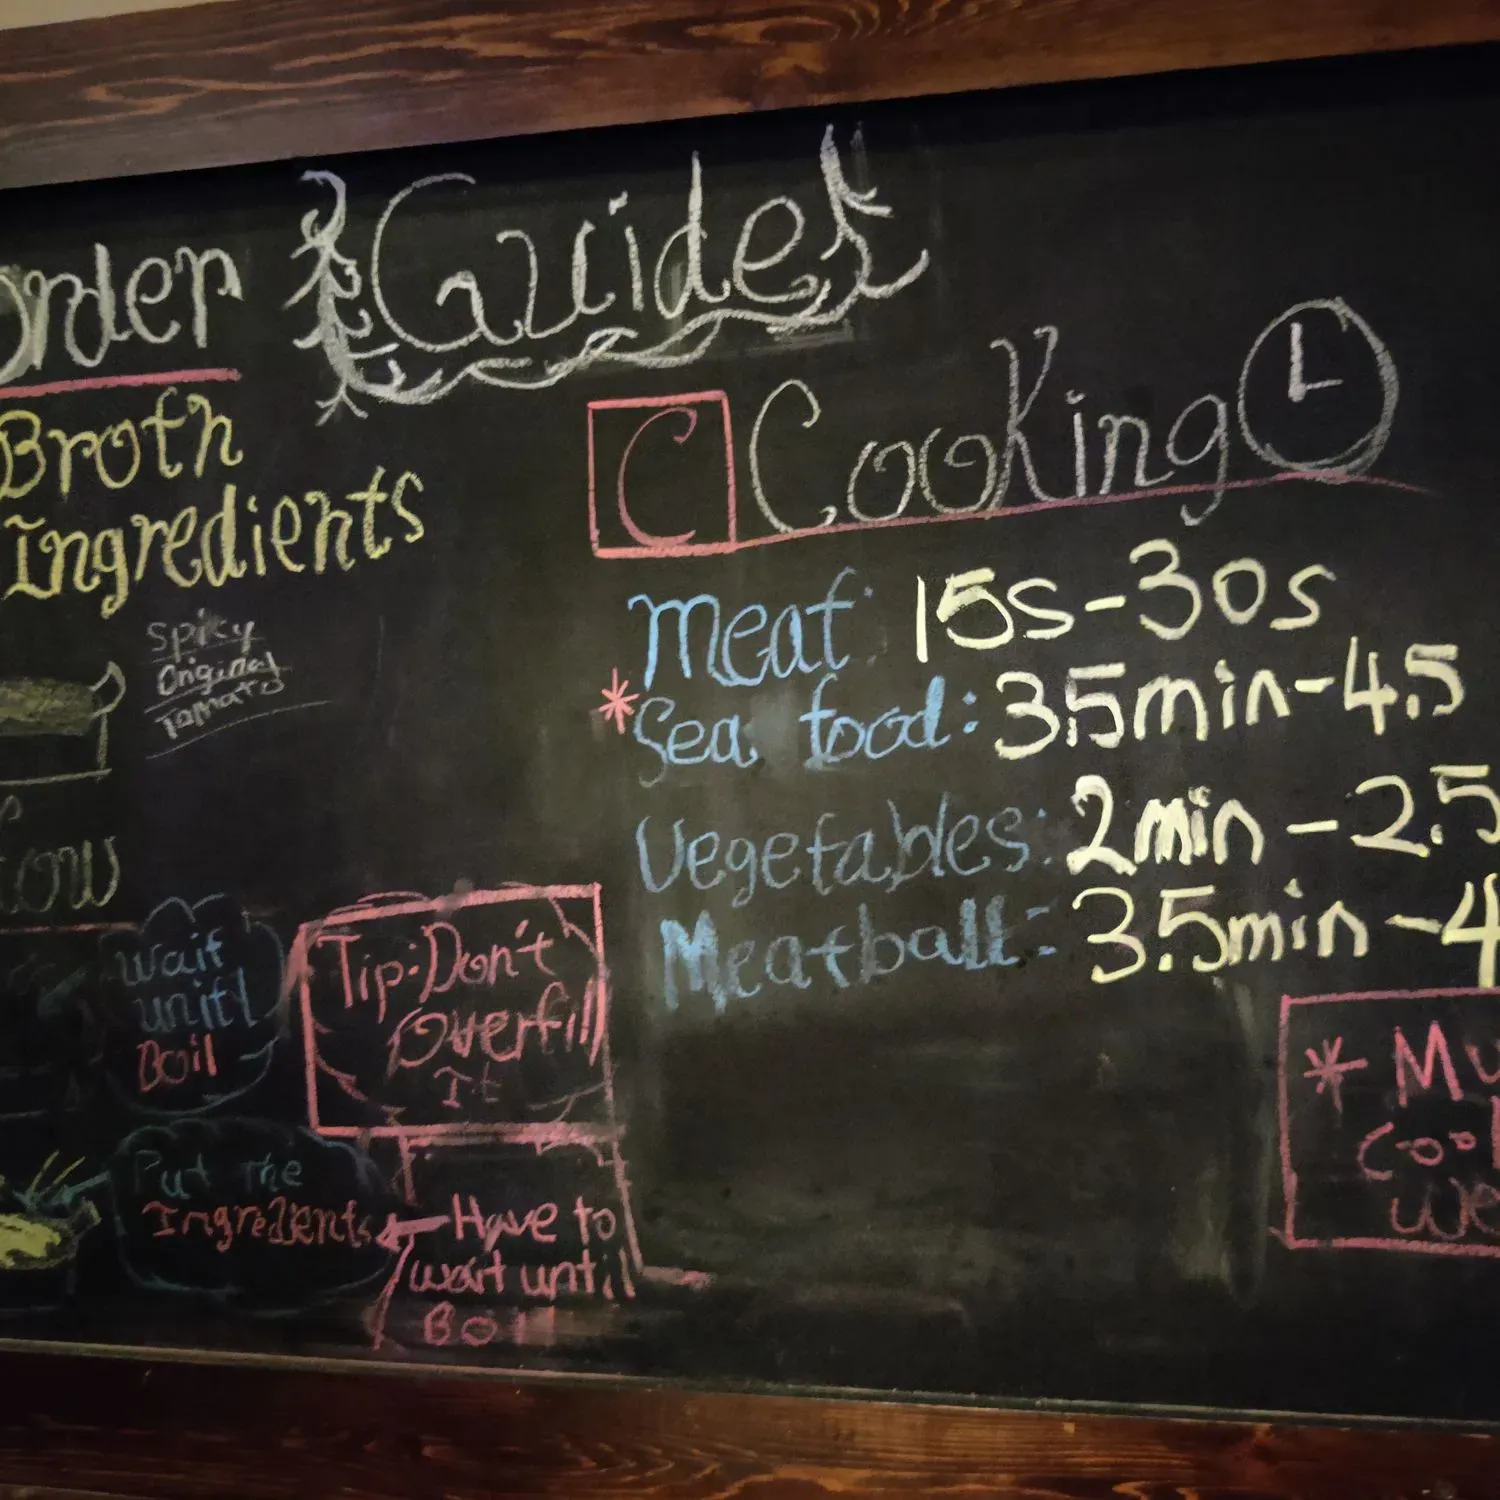 Order Guides
Broth
Ingredients
Spicy
Original
Tomato
Wait
unitl
Boil
Tip: Don't
Overfill
It
Put The
Ingredients
Have to
wait until
Boil
C Cooking
Meat: 15s-30s
*Sea food: 3.5min-4.5
Vegetables: 2min-2.5
Meatball: 3.5min-4
*